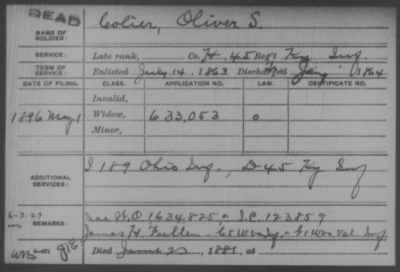 DEAD
NAME OF SOLDIER: Colier, Oliver S.
SERVICE: Late rank, Co. H, 45 Reg't Ky Inf.
TERM OF SERVICE: Enlisted July 14, 1863 Discharged 1864
DATE OF FILING. CLASS. APPLICATION NO. LAW. CERTIFICATE NO.
Invalid,
1896 May 1 Widow, 633,053
Minor,
ADDITIONAL SERVICES: I 189 Ohio Inf., D 45 Ky Inf
6-3-27
REMARKS: See W.O. 1634825 & I.C. 123859
James H. Fullen
Died June 23, 1881, at